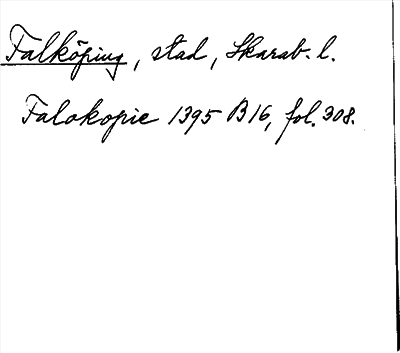 Falköping, stad, Skarab. l.
Falokopie 1395 B 16, fol. 308.